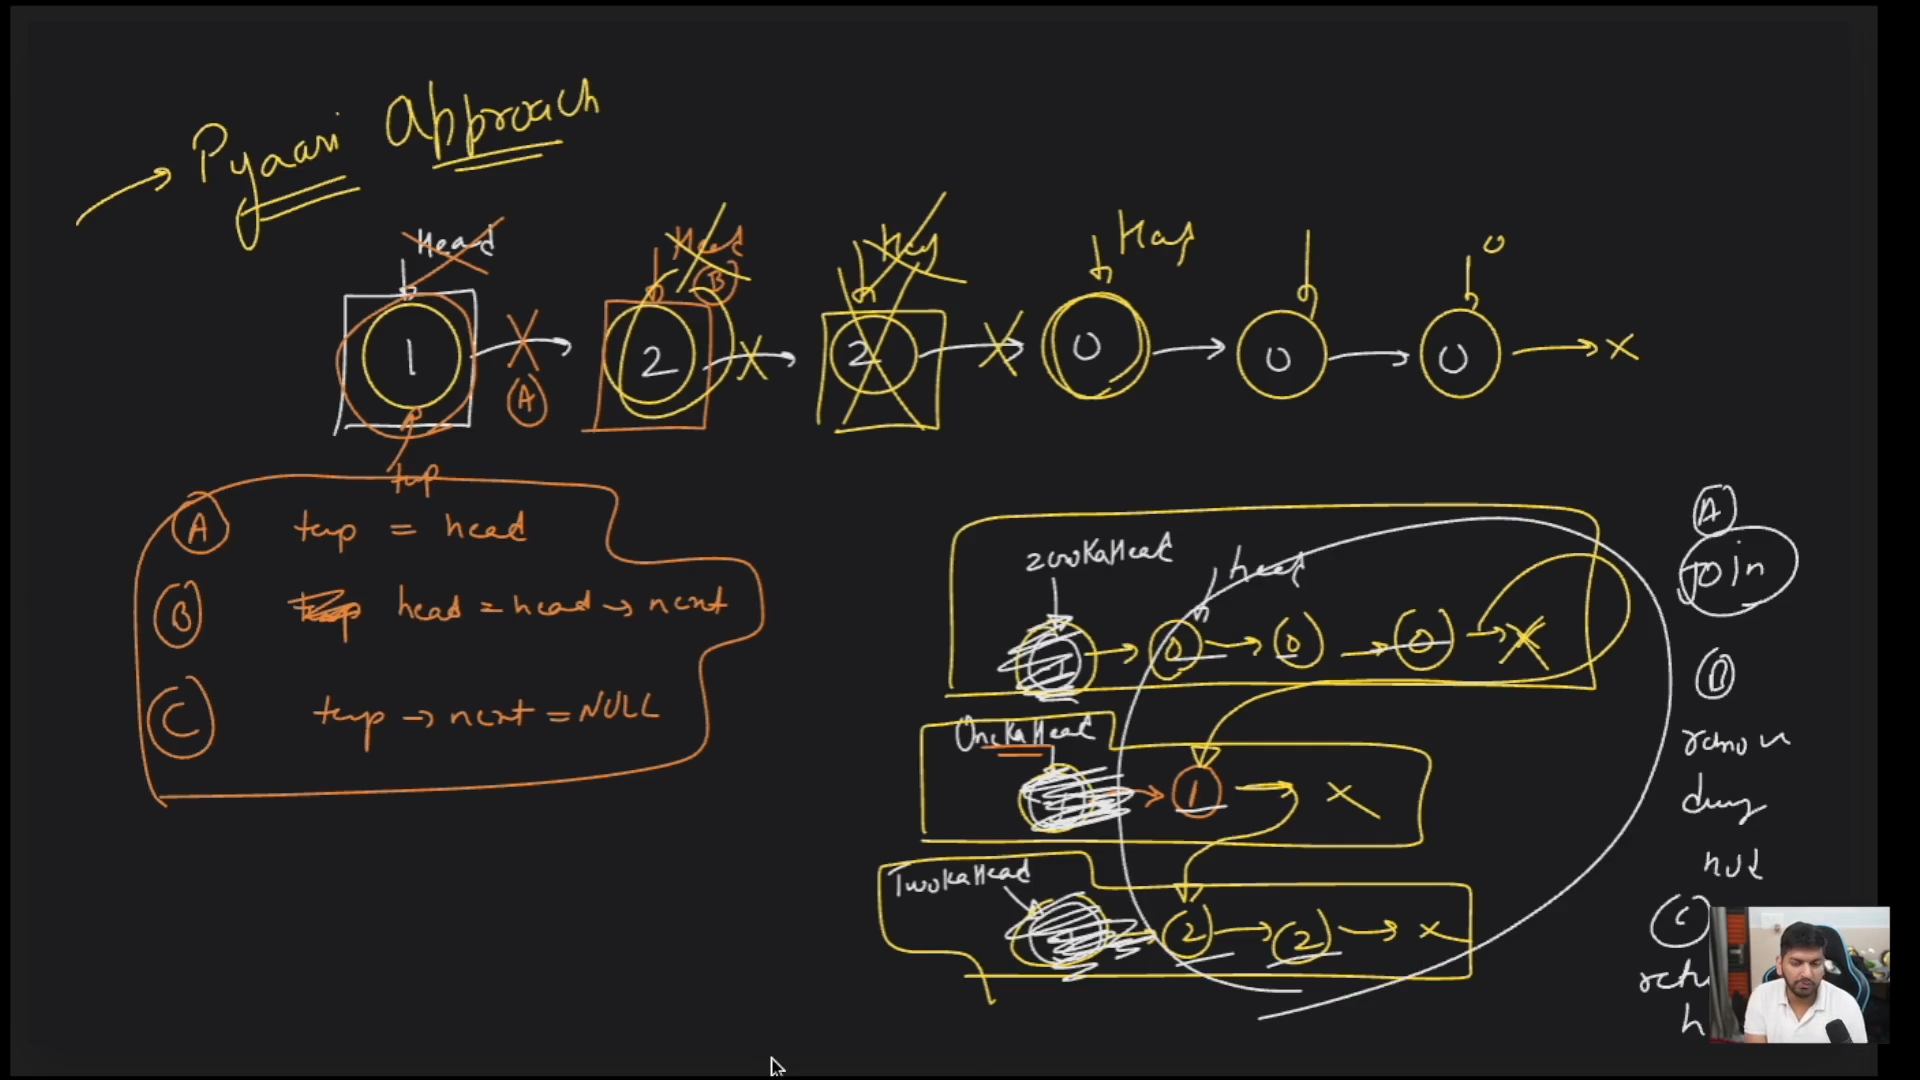 → Pyaari Approach
Head
Head
Head
Head
0
B
1 → 2 → 2 → 0 → 0 → 0 → X
A
temp
A temp = head
B head = head → next
C temp → next = NULL
zeroKaHead
head
-1 → 0 → 0 → 0 → X
OneKaHead
-1 → 1 → X
TwoKaHead
-1 → 2 → 2 → X
A
Join
B
remove
dummy
C